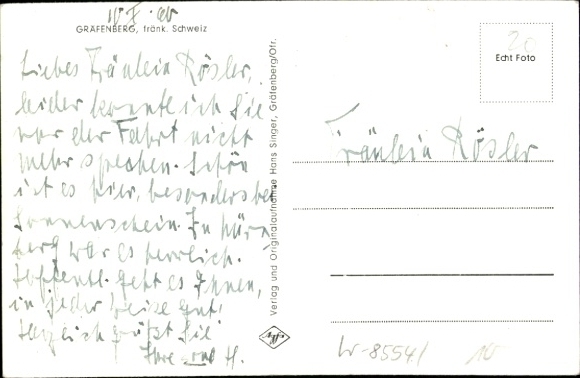 GRÄFENBERG, fränk. Schweiz
Liebes Fräulein Rösler,
leider konnte ich Sie
vor der Fahrt nicht
mehr sprechen. Schön
ist es hier, besonders bei
Sonnenschein. In Nürn
berg war es herrlich.
Hoffentl. geht es Ihnen,
in jeder Weise gut.
Herzlich grüßt Sie
Ihre
Verlag und Originalaufnahme Hans Singer, Gräfenberg/Ofr.
Agfa
20
Echt Foto
Fräulein Rösler
10